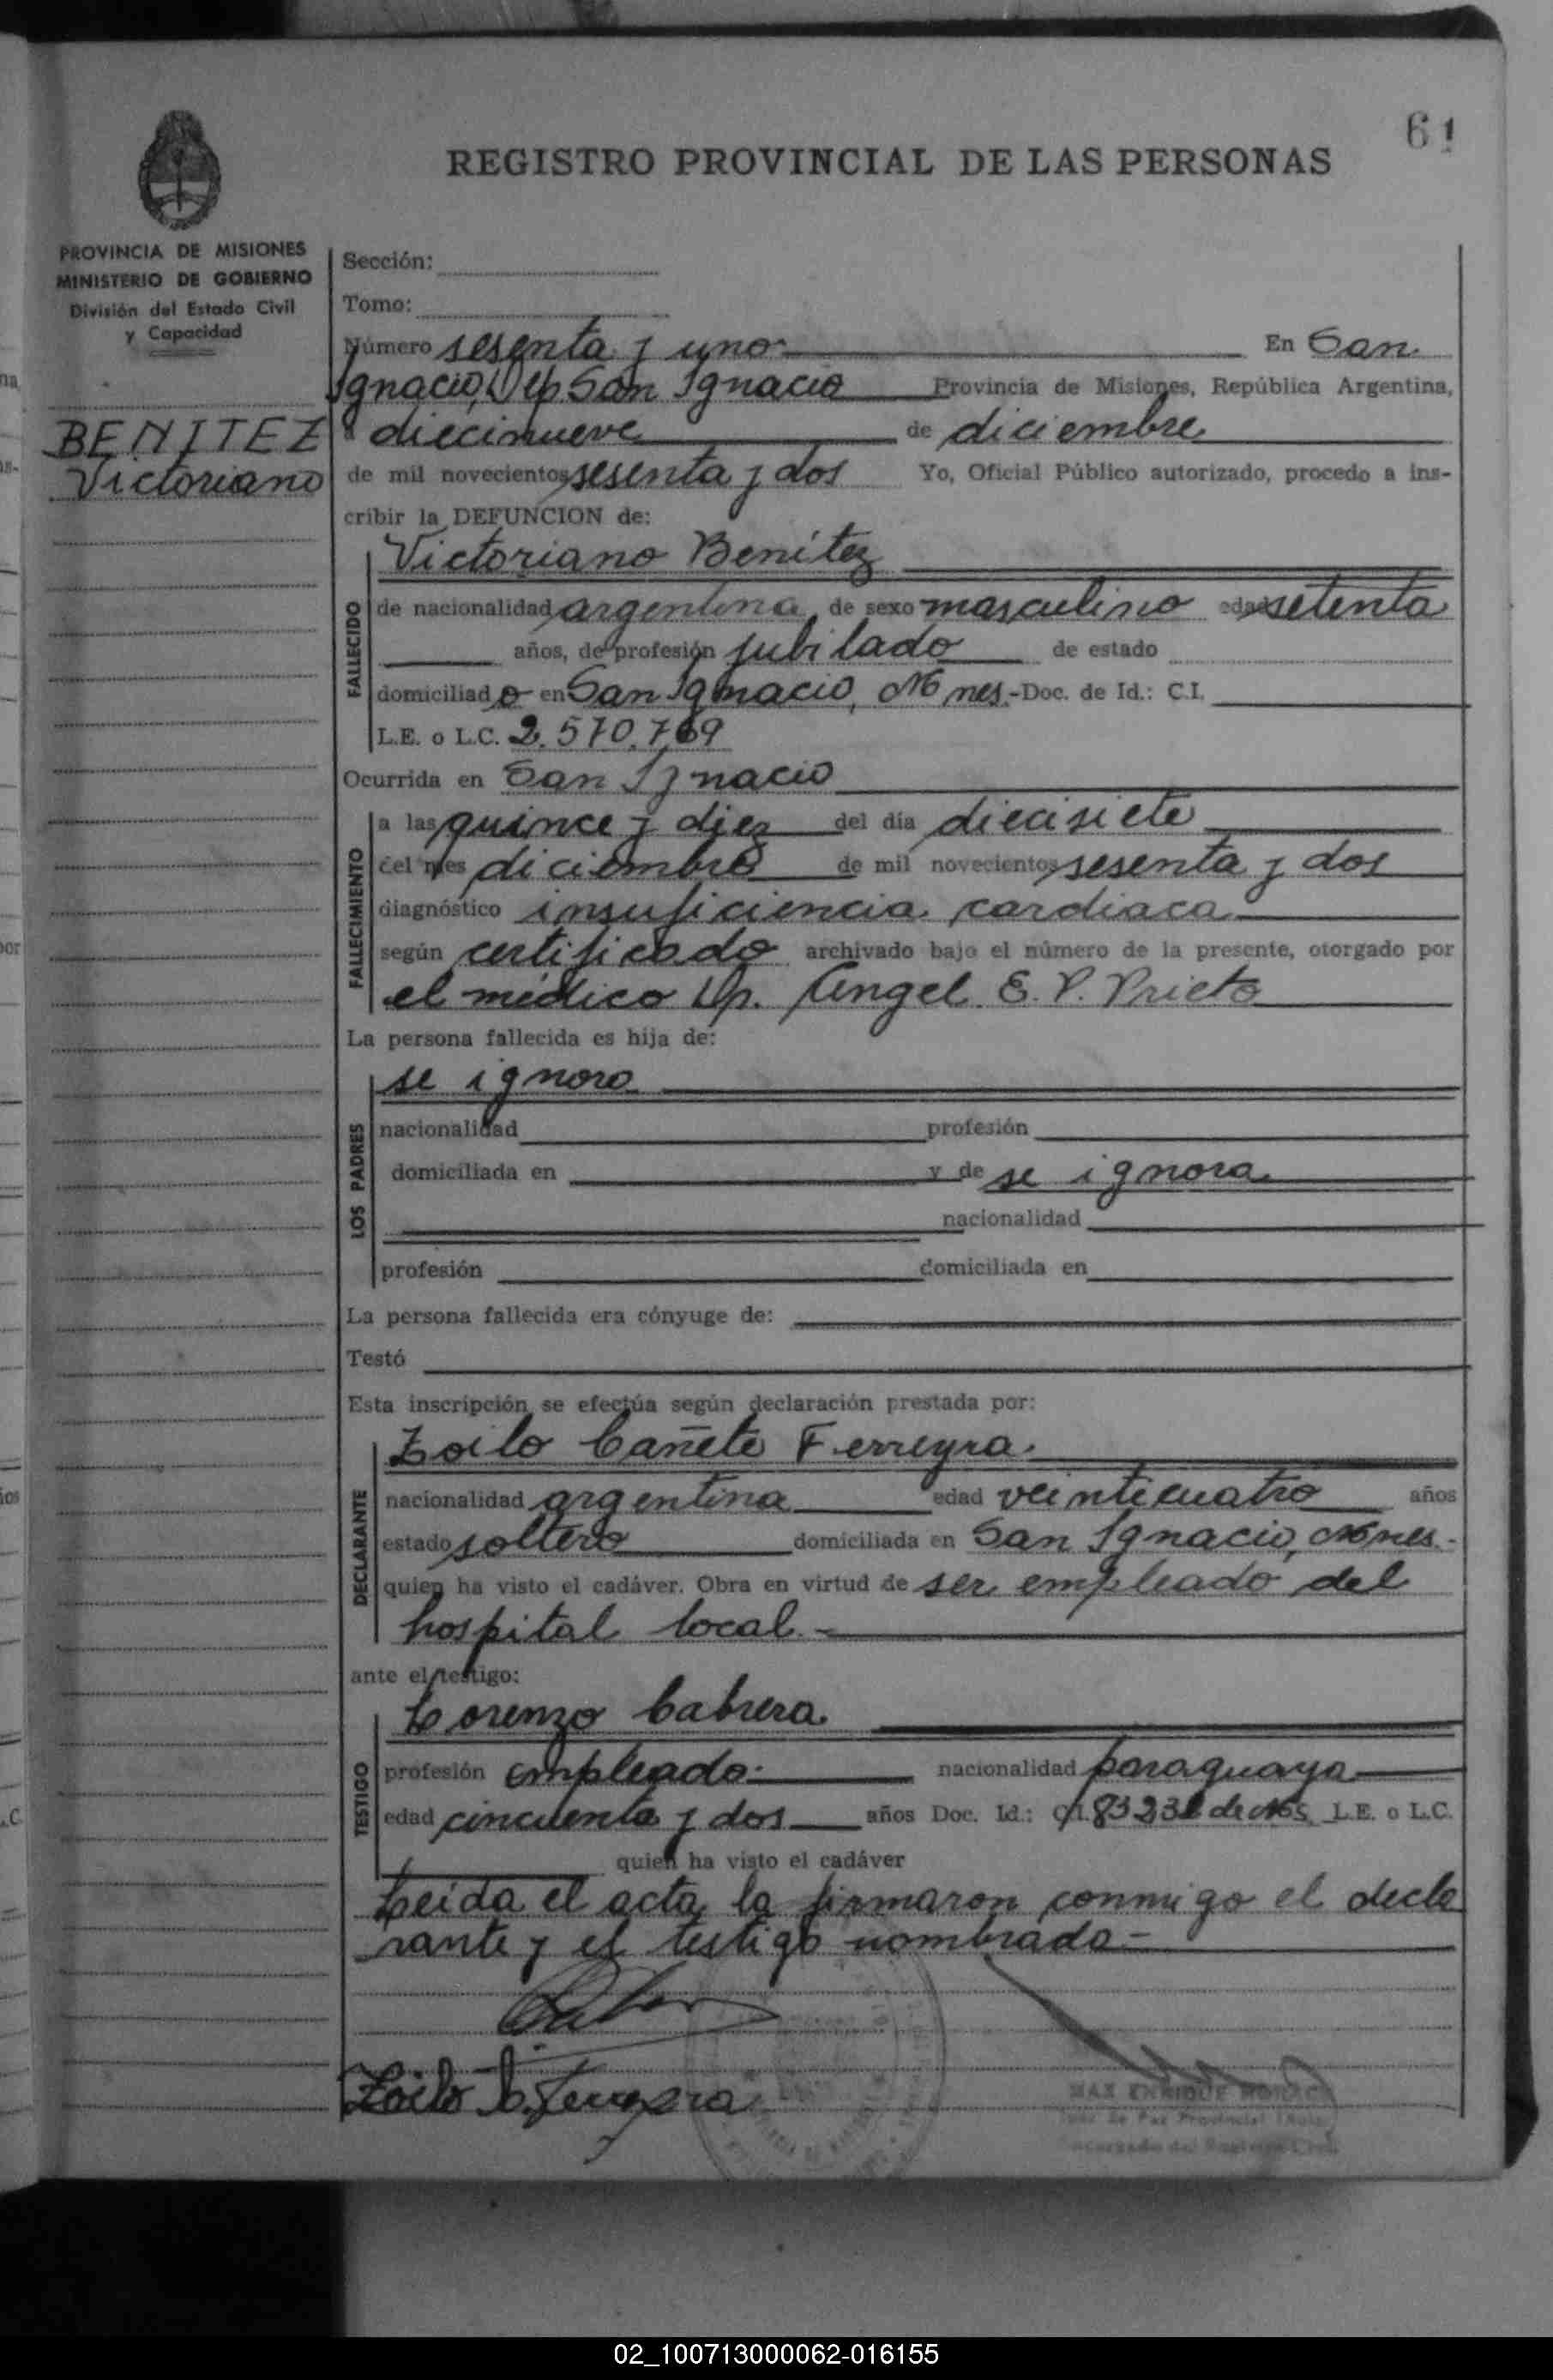 61
REGISTRO PROVINCIAL DE LAS PERSONAS
PROVINCIA DE MISIONES
MINISTERIO DE GOBIERNO
División del Estado Civil
y Capacidad
BENITEZ
Victoriano
Sección:
Tomo:
Número sesenta y uno En San
Ignacio, Dep San Ignacio Provincia de Misiones, República Argentina,
a diecinueve de diciembre
de mil novecientos sesenta y dos Yo, Oficial Público autorizado, procedo a ins-
cribir la DEFUNCION de:
FALLECIDO
Victoriano Benítez
de nacionalidad argentina de sexo masculino edad setenta
años, de profesión jubilado de estado
domiciliado en San Ignacio, Mnes.- Doc. de Id.: C.I.
L.E. o L.C. 2.570.769
Ocurrida en San Ignacio
FALLECIMIENTO
a las quince y diez del día diecisiete
del mes diciembre de mil novecientos sesenta y dos
diagnóstico insuficiencia cardiaca
según certificado archivado bajo el número de la presente, otorgado por
el médico Dr. Angel E. P. Prieto
La persona fallecida es hija de:
LOS PADRES
se ignora
nacionalidad profesión
domiciliada en y de se ignora
nacionalidad
profesión domiciliada en
La persona fallecida era cónyuge de:
Testó
Esta inscripción se efectúa según declaración prestada por:
DECLARANTE
Zoilo Cañete Ferreyra
nacionalidad argentina edad veinticuatro años
estado soltero domiciliada en San Ignacio, Mnes.-
quien ha visto el cadáver. Obra en virtud de ser empleado del
hospital local.-
ante el testigo:
TESTIGO
Lorenzo Cabrera
profesión empleado.- nacionalidad paraguaya
edad cincuenta y dos años Doc. Id.: C.I. de L.E. o L.C.
quien ha visto el cadáver
Leída el acta la firmaron conmigo el decla
rante y el testigo nombrado.-
Zoilo C. Ferreyra
MAX ENRIQUE
Juez de Paz Provincial
Encargado del Registro Civil
02_100713000062-016155